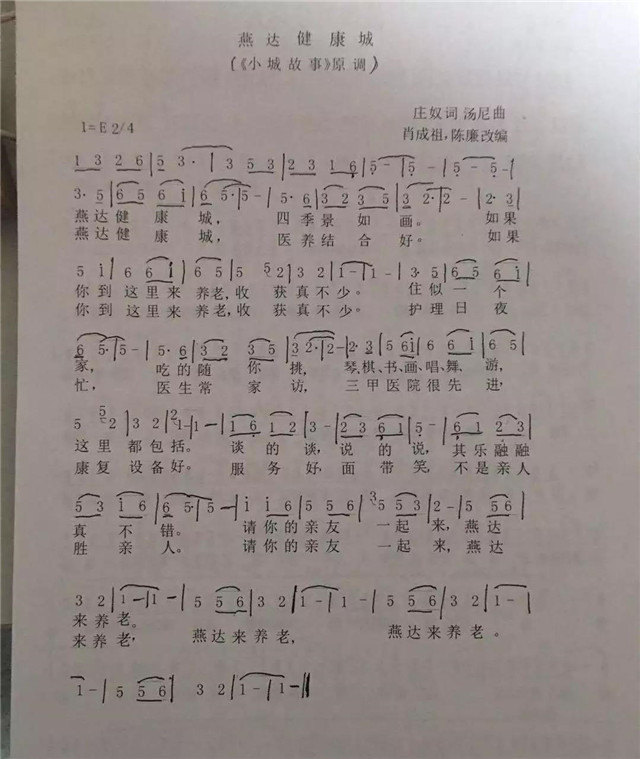 燕达健康城
(《小城故事》原调)
庄奴词 汤尼曲
1=E 2/4
肖成祖,陈廉改编
1 3 2 6 | 5 3· | 3 5 3 | 2 3 1 6 | 5 - | 5 - | 5 - 5 - |
3· 5 | 6 5 6 i | 6 5· | 5 - | 5· 6 | 3 2 3 5 | 3 2· | 2 - | 2· 3 |
燕达健 康 城, 四季景 如 画。 如果
燕达健 康 城, 医养结 合 好。 如果
5 i | 6 6 i | 6 5 | 5 5 2 | 3 2 | 1 - | 1 - | 3· 5 | 6 5 6 i |
你到 这里来 养老,收 获真不少。 住似一个
你到 这里来 养老,收 获真不少。 护理日夜
6 5· | 5 - | 5· 5 6 | 3 2 3 5 | 3 2· | 2 - | 2· 3 | 5 6 5 i | 6 i | 6 5 |
家, 吃的随 你 挑, 琴、棋、书、画、唱、舞、游,
忙, 医生常 家 访, 三甲医院很先进,
5 5 2 | 3 2 | 2 1 - | 1 - | 1 6 1 2 | 3 - | 2 3 6 1 | 5 - | 6 1 2 3 |
这里 都包括。 谈 的 谈,说 的 说,其乐融融
康复 设备好。 服 务 好,面 带 笑,不是亲人
5 3 i 6 | 5 - | 5 - | i i 6 | 5 5 6 | 3 5 5 3 | 2 - | 5 5 6 |
真 不 错。 请你的亲友 一起 来,燕达
胜 亲 人。 请你的亲友 一起 来,燕达
3 2 | 1 - | 1 - | 5 5 6 | 3 2 | 1 - | 1 - | 5 5 6 | 3 2 |
来养老。
来养老, 燕达来养老, 燕达来养老。
1 - | 5 5 6 | 3 2 | 1 - | 1 - ‖